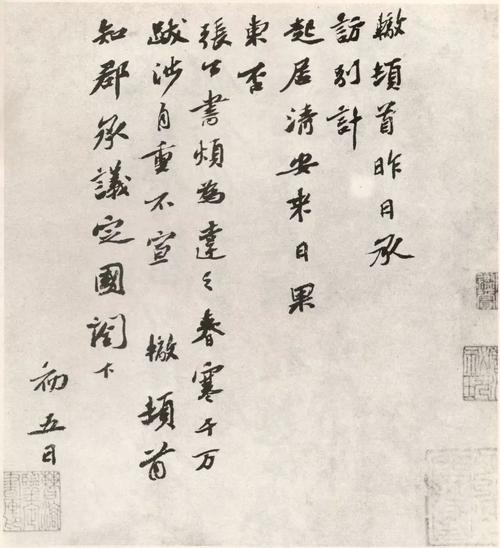 轍頓首昨日承
訪別計
起居淸安來日果
東否
張公書煩爲達之春寒千万
跋涉自重不宣　轍頓首
知郡承議定國閣下
初五日